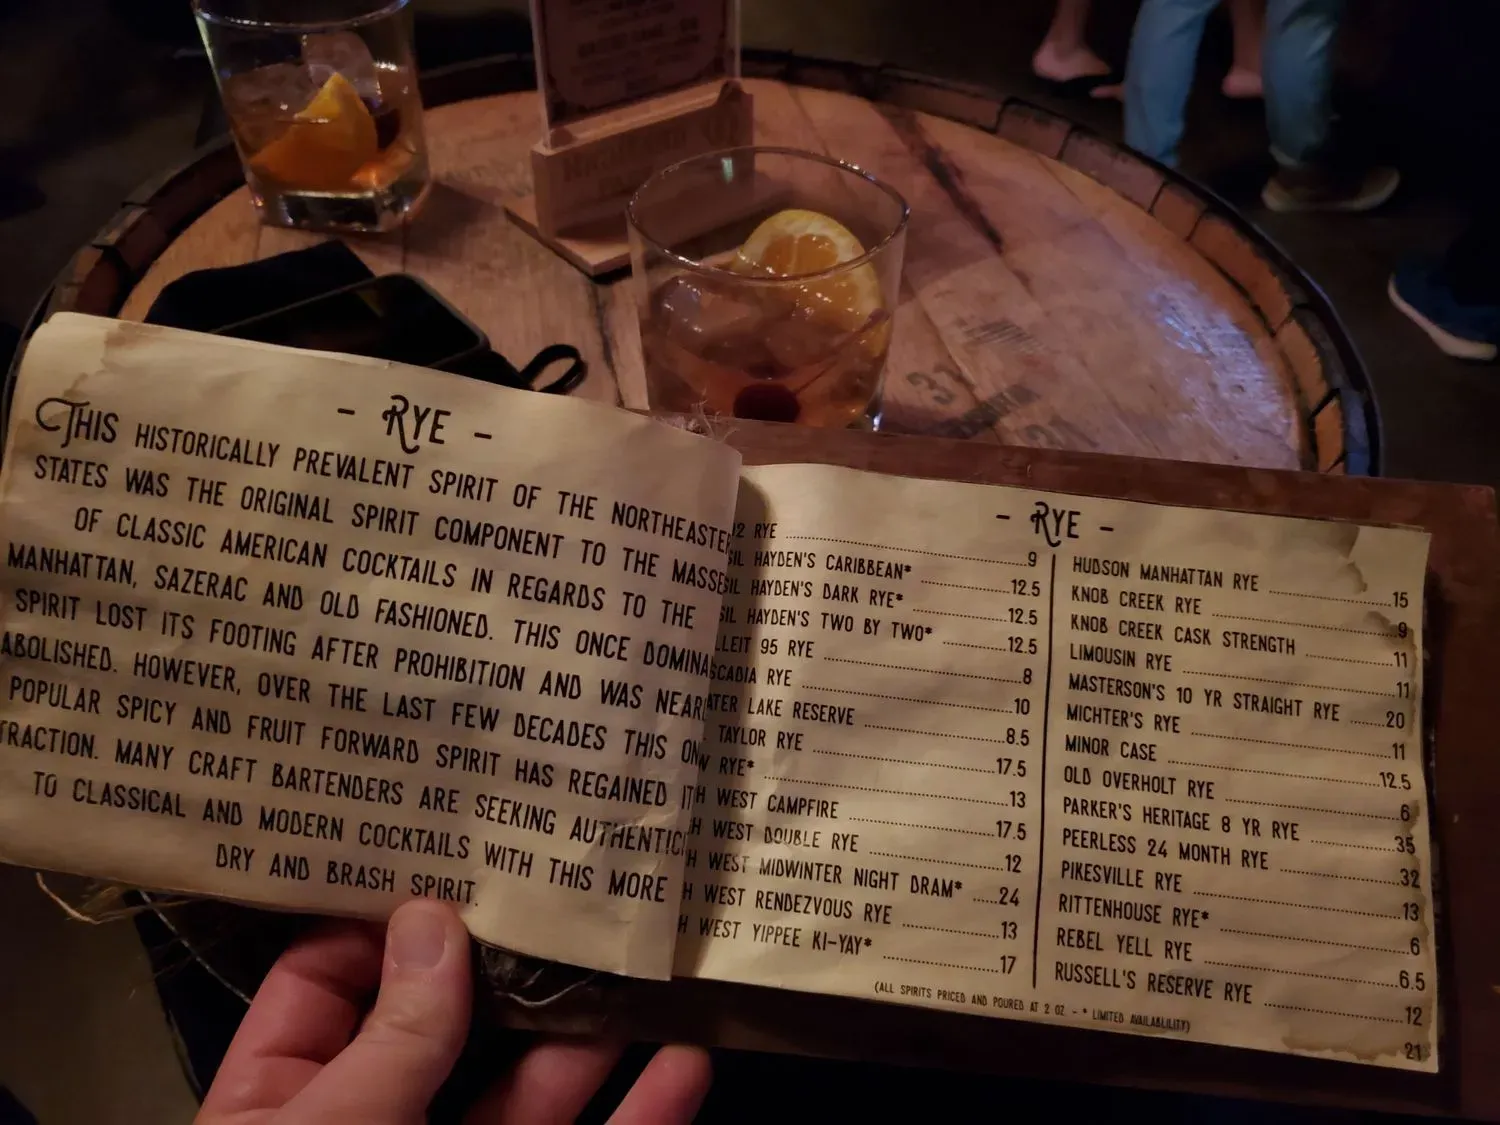 - RYE -
THIS HISTORICALLY PREVALENT SPIRIT OF THE NORTHEASTER
STATES WAS THE ORIGINAL SPIRIT COMPONENT TO THE MASSES
OF CLASSIC AMERICAN COCKTAILS IN REGARDS TO THE
MANHATTAN, SAZERAC AND OLD FASHIONED. THIS ONCE DOMINA
SPIRIT LOST ITS FOOTING AFTER PROHIBITION AND WAS NEARL
ABOLISHED. HOWEVER, OVER THE LAST FEW DECADES THIS ON
POPULAR SPICY AND FRUIT FORWARD SPIRIT HAS REGAINED IT
TRACTION. MANY CRAFT BARTENDERS ARE SEEKING AUTHENTIC
TO CLASSICAL AND MODERN COCKTAILS WITH THIS MORE
DRY AND BRASH SPIRIT.
- RYE -
12 RYE 9
SIL HAYDEN'S CARIBBEAN* 12.5
SIL HAYDEN'S DARK RYE* 12.5
SIL HAYDEN'S TWO BY TWO* 12.5
LLEIT 95 RYE 8
SCADIA RYE 10
ATER LAKE RESERVE 8.5
. TAYLOR RYE 17.5
W RYE* 13
H WEST CAMPFIRE 17.5
H WEST DOUBLE RYE 12
H WEST MIDWINTER NIGHT DRAM* 24
H WEST RENDEZVOUS RYE 13
H WEST YIPPEE KI-YAY* 17
HUDSON MANHATTAN RYE 15
KNOB CREEK RYE 9
KNOB CREEK CASK STRENGTH 11
LIMOUSIN RYE 11
MASTERSON'S 10 YR STRAIGHT RYE 20
MICHTER'S RYE 11
MINOR CASE 12.5
OLD OVERHOLT RYE 6
PARKER'S HERITAGE 8 YR RYE 35
PEERLESS 24 MONTH RYE 32
PIKESVILLE RYE 13
RITTENHOUSE RYE* 6
REBEL YELL RYE 6.5
RUSSELL'S RESERVE RYE 12
(ALL SPIRITS PRICED AND POURED AT 2 OZ - * LIMITED AVAILABLILITY)
21